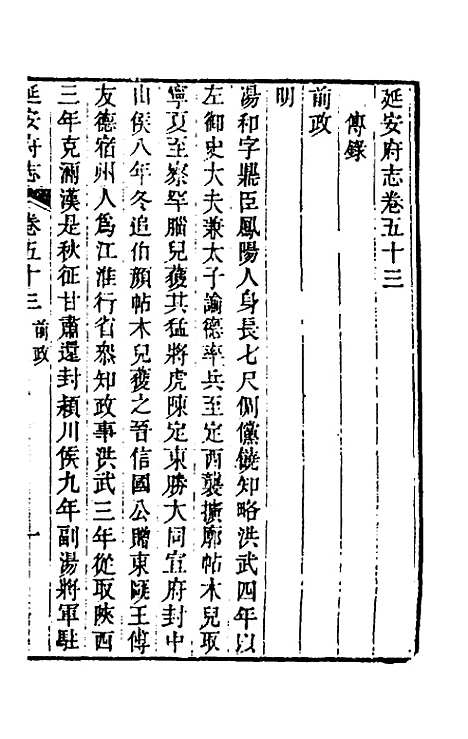 延安府志卷五十三
傳錄
前政
明
湯和字鼎臣鳳陽人身長七尺倜儻饒知略洪武四年以
左御史大夫兼太子諭德率兵至定西襲擴廓帖木兒取
寧夏至察罕腦兒獲其猛將虎陳定東勝大同宣府封中
山侯八年冬追伯顏帖木兒獲之晉信國公贈東甌王傅
友德宿州人為江淮行省叅知政事洪武三年從取陝西
三年克瀰漢是秋征甘肅還封潁川侯九年副湯將軍駐
延安府志 卷五十三 前政 一